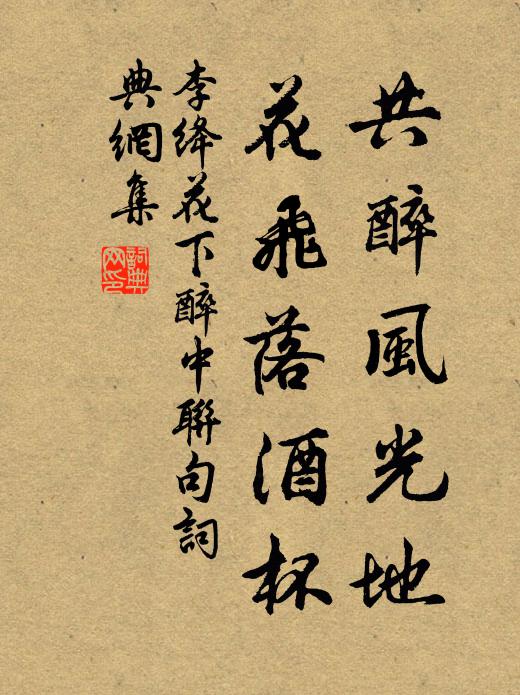 共醉風光地
花飛落酒杯
李絳花下醉中聯句詞
典網集
詞典網印